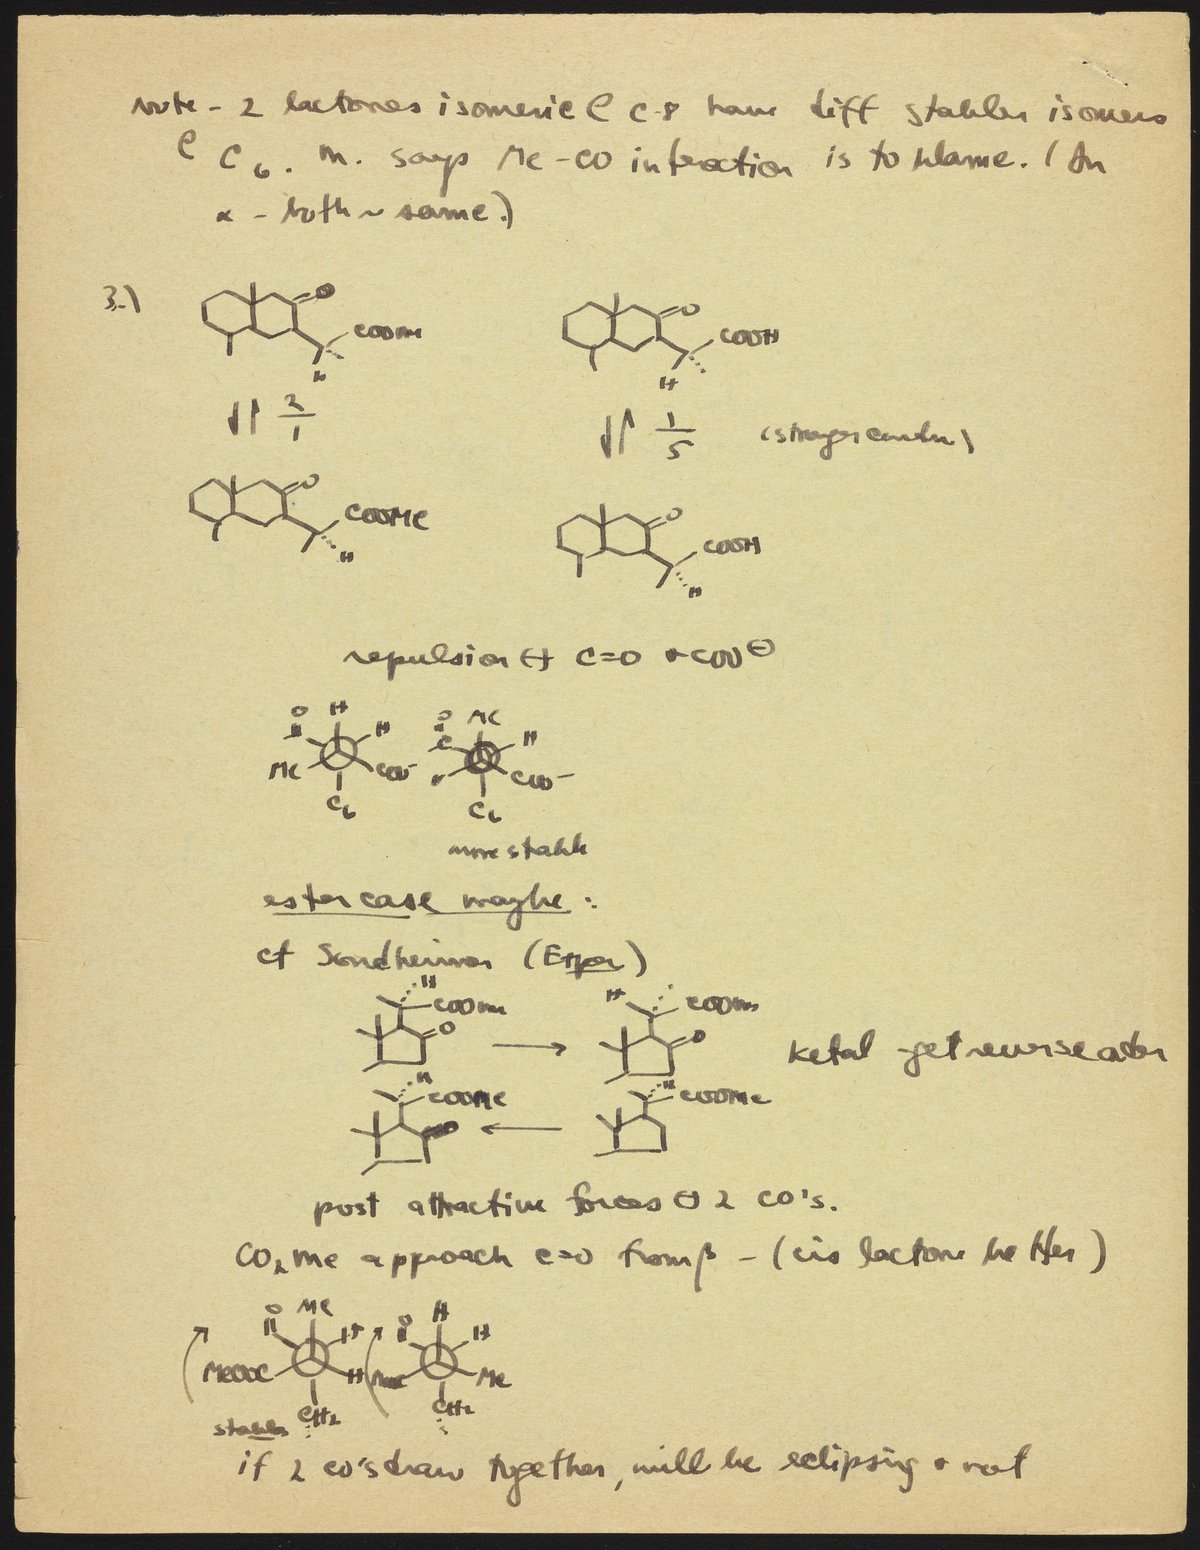 note - 2 lactones isomeric @ C-8 have diff stabler isomers
@ C6. M. says Me-CO interaction is to blame. (In
α - both ~ same.)
3.)
O O
COOMe COOH
H H
2/1 1/5 (stronger)
O O
COOMe COOH
H H
repulsion C=O + COO⊖
O H H O Me H
C
Me COO- COO-
C6 C6
more stable
ester case maybe :
cf Sondheimer
H COOMe H COOMe
O O
ketal - get reverse
H COOMe H COOMe
post attractive forces 2 CO's.
CO2Me approach C=O from β - (cis lactone better)
O Me H O H H
MeOOC H Me
CH2 CH2
stabler
if 2 CO's draw together, will be eclipsing + not